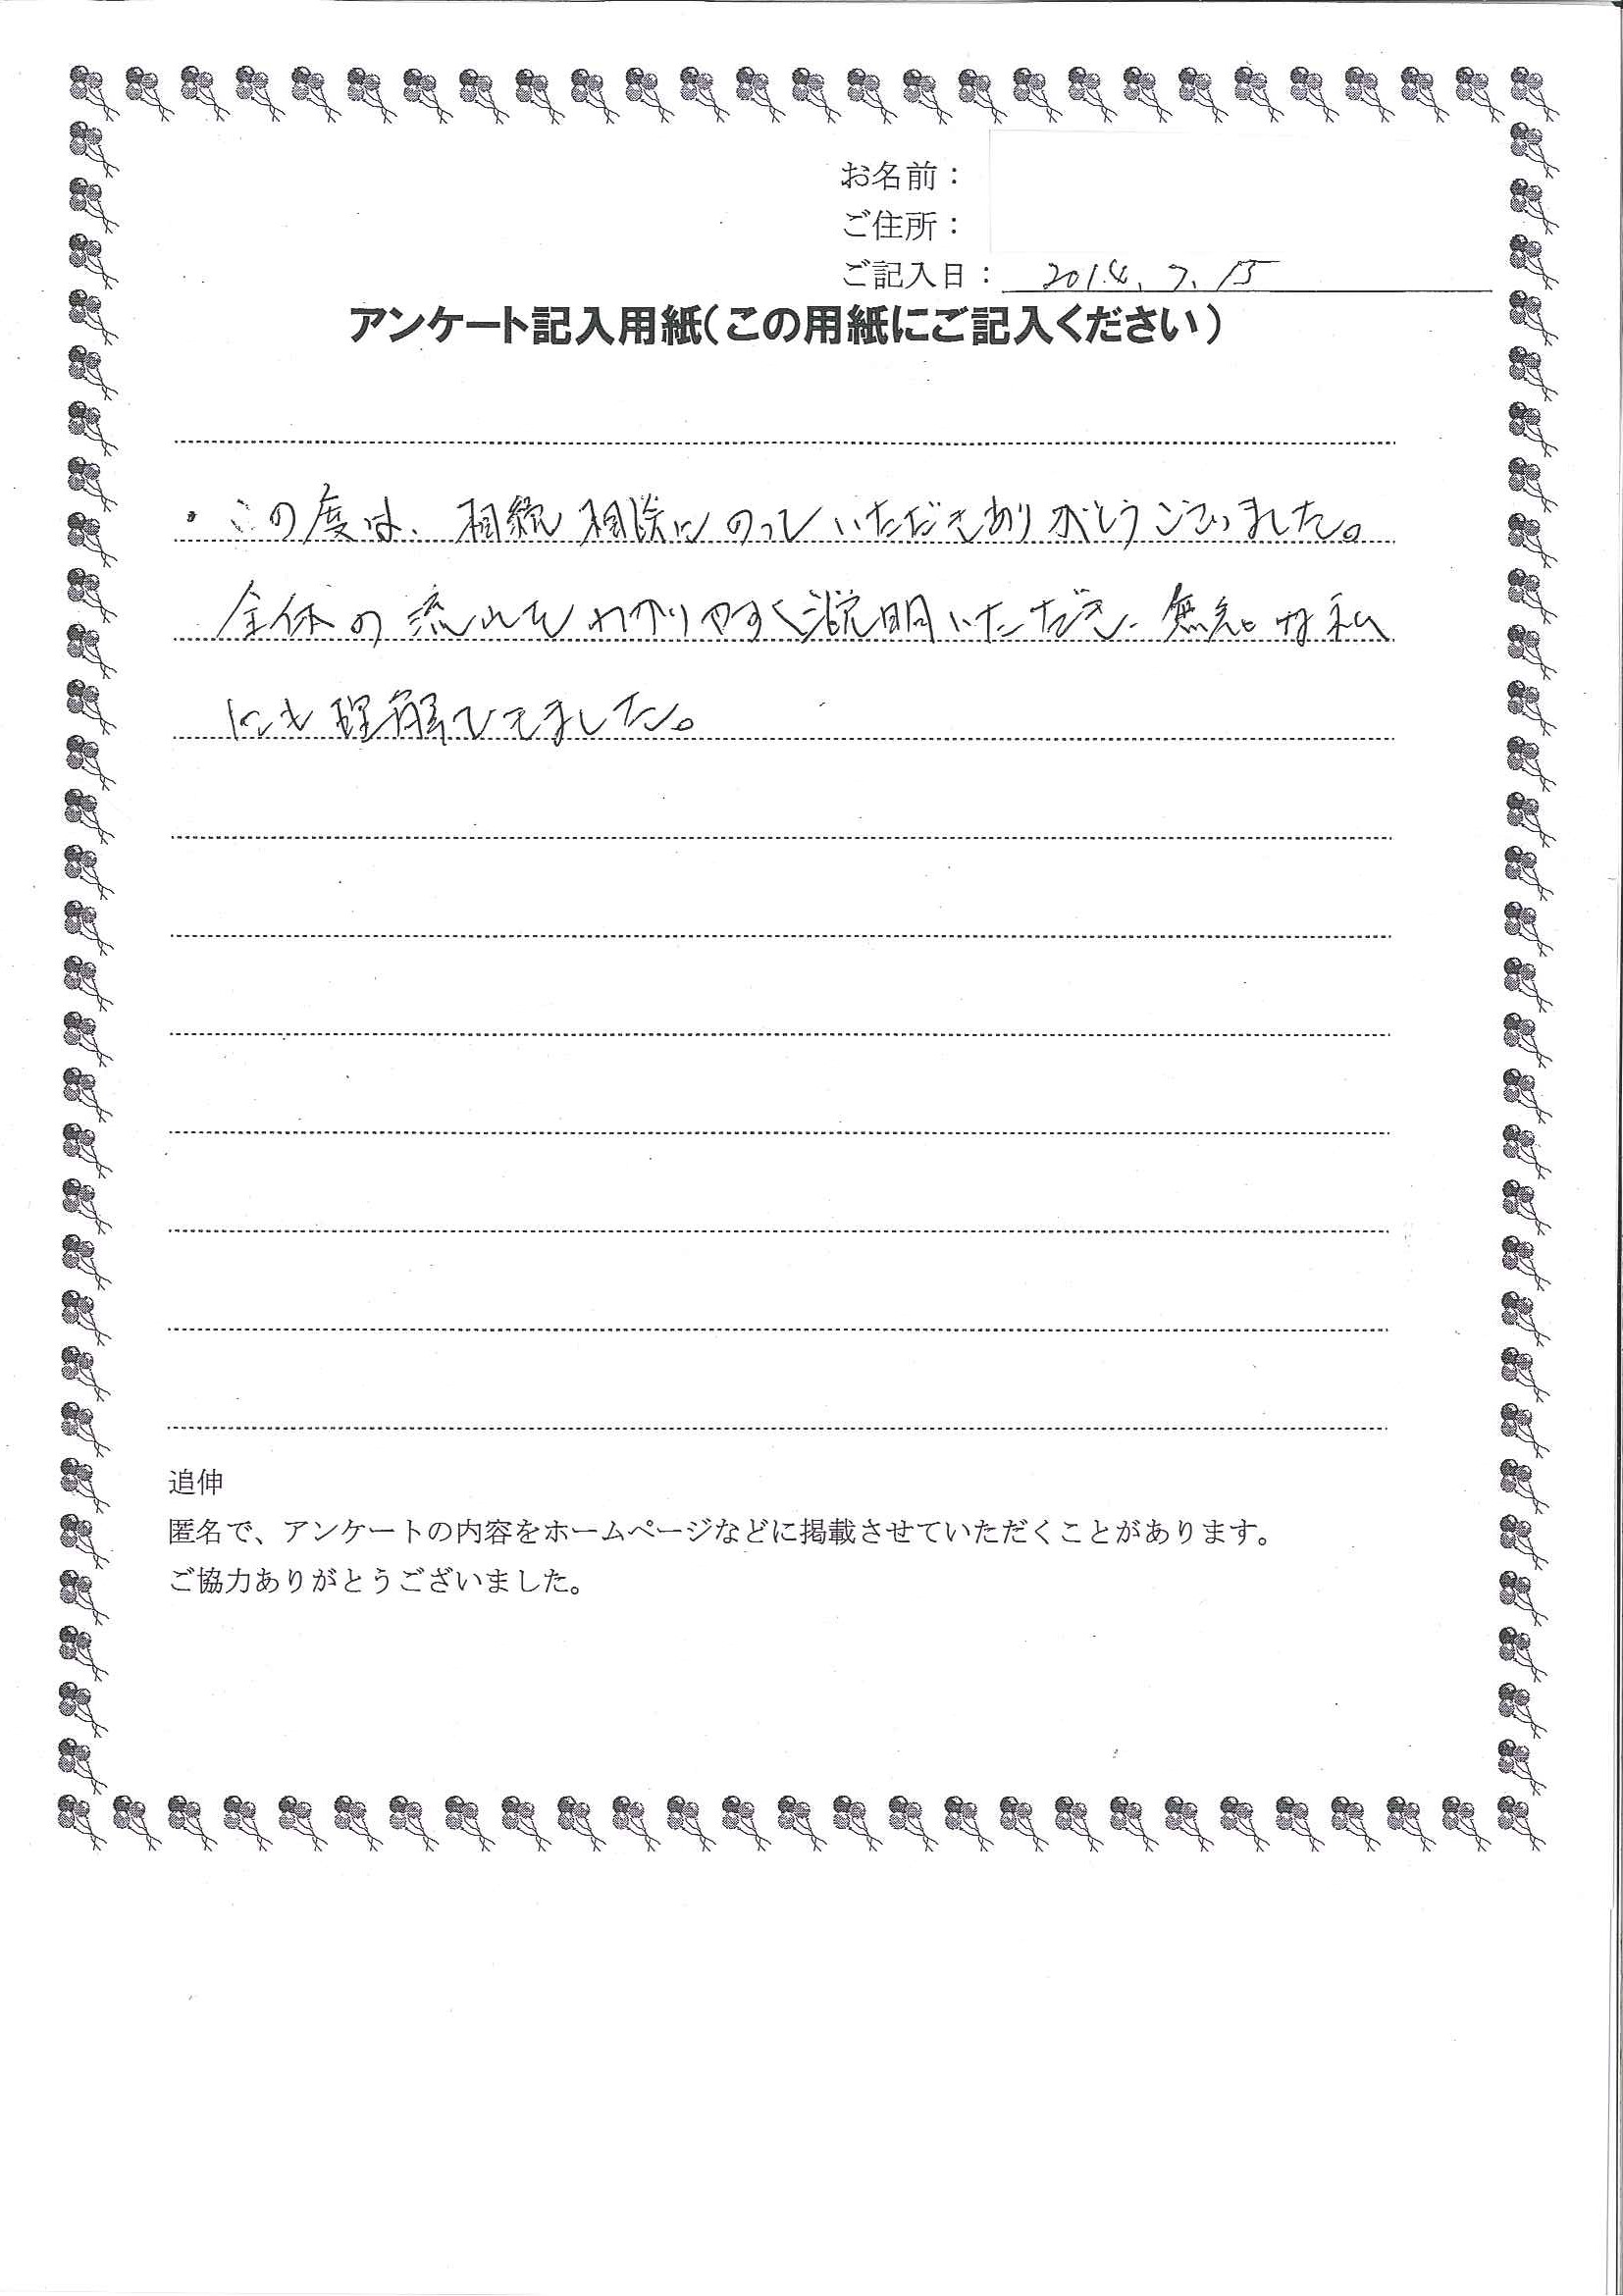 お名前：
ご住所：
ご記入日： 2014. 7. 15
アンケート記入用紙（この用紙にご記入ください）
・この度は、相続相談にのっていただきありがとうございました。
全体の流れをわかりやすく説明いただき、無知な私
にも理解できました。
追伸
匿名で、アンケートの内容をホームページなどに掲載させていただくことがあります。
ご協力ありがとうございました。